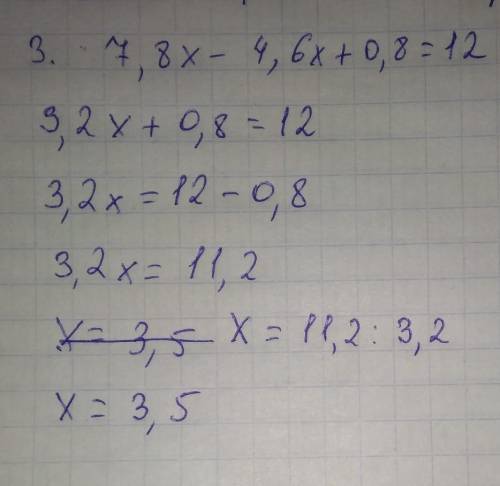 3. 7,8x - 4,6x + 0,8 = 12
3,2x + 0,8 = 12
3,2x = 12 - 0,8
3,2x = 11,2
x = 3,5 x = 11,2 : 3,2
x = 3,5